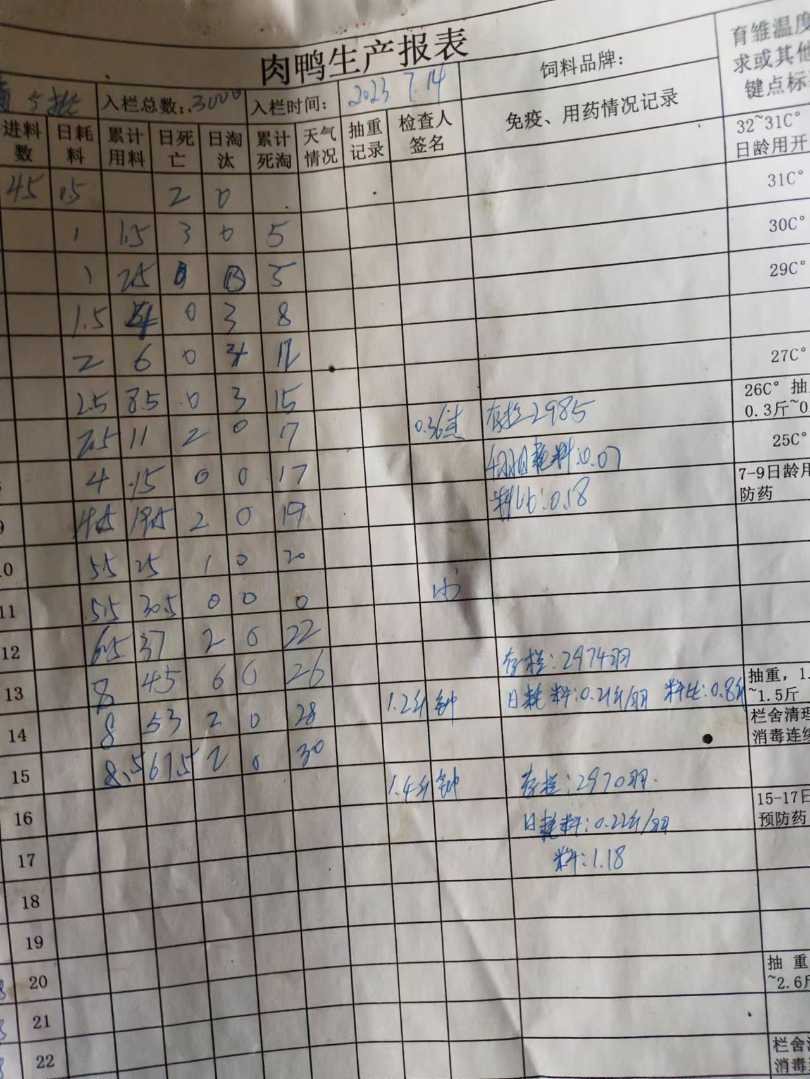 肉鸭生产报表
5批 入栏总数:3000 入栏时间: 2023 7.14 饲料品牌: 育雏温度
求或其他
键点标
进料数 日耗料 累计用料 日死亡 日淘汰 累计死淘 天气情况 抽重记录 检查人签名 免疫、用药情况记录
32~31C°
日龄用开
45 0.5 2 0 31C°
1 1.5 3 0 5 30C°
1 2.5 5 29C°
1.5 4 0 3 8
2 6 0 12 27C°
2.5 8.5 0 3 15 26C° 抽
0.3斤~0.
2.5 11 2 0 7 0.36 存栏2985 25C°
4 15 0 0 17 耗料:0.07 7-9日龄用
防药
9 4.5 19.5 2 0 19 料比:0.18
10 5.5 25 1 0 20
11 5.5 30.5 0 0 0
12 6.5 37 2 0 22 存栏:2974羽
13 8 45 6 0 26 1.2斤 钟 日耗料:0.21斤/羽 料比:0.8 抽重,1.
~1.5斤
14 8 53 2 0 28 栏舍清理
消毒连续
15 8.5 61.5 2 0 30 1.4斤 钟 存栏:2970羽
16 日耗料:0.22斤/羽 15-17日
预防药
17 料:1.18
18
19
20 抽 重
~2.6斤
21
22 栏舍清
消毒